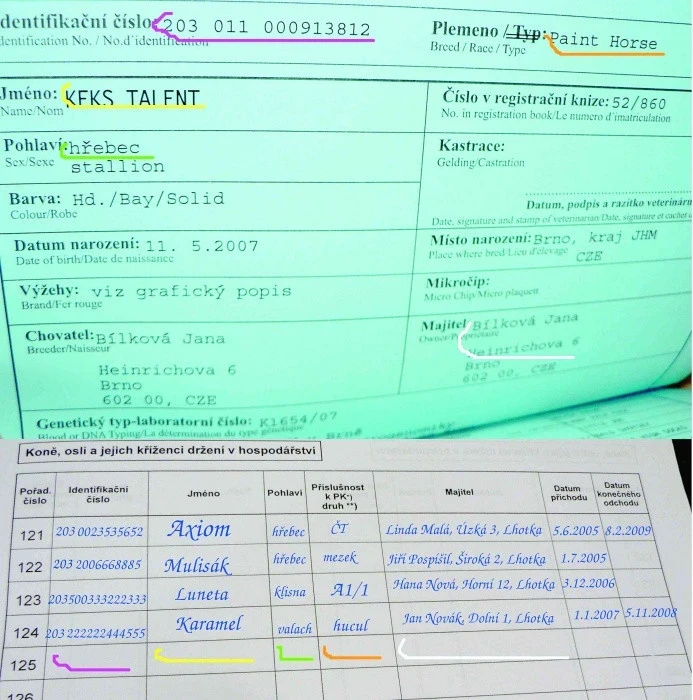 dentifikační číslo: 203 011 000913812
dentification No. / No.d´identification
Plemeno / Typ: Paint Horse
Breed / Race / Type
Jméno: KEKS TALENT
Name/Nom
Číslo v registrační knize: 52/860
No. in registration book/Le numero d'imatriculation
Pohlaví: hřebec
Sex/Sexe stallion
Kastrace:
Gelding/Castration
Barva: Hd./Bay/Solid
Colour/Robe
Datum, podpis a razítko veterinárn
Date, signature and stamp of veterinarian/Date, signature et cachet
Datum narození: 11. 5.2007
Date of birth/Date de naissance
Místo narození: Brno, kraj JHM
Place where bred/Lieu d'élevage CZE
Výžehy: viz grafický popis
Brand/Fer rouge
Mikročip:
Micro Chip/Micro plaquett
Chovatel: Bílková Jana
Breeder/Naisseur
Heinrichova 6
Brno
602 00, CZE
Majitel Bílková Jana
Owner/Propriétaire
Heinrichova 6
Brno
602 00, CZE
Genetický typ-laboratorní číslo: K1654/07
Blood or DNA Typing/La détermination du type génétique
Koně, osli a jejich kříženci držení v hospodářství
Pořad. číslo Identifikační číslo Jméno Pohlaví Příslušnost k PK*) druh **) Majitel Datum příchodu Datum konečného odchodu
121 203 0023535652 Axiom hřebec ČT Linda Malá, Úzká 3, Lhotka 5.6.2005 8.2.2009
122 203 2006668885 Mulisák hřebec mezek Jiří Pospíšil, Široká 2, Lhotka 1.7.2005
123 203500333222333 Luneta klisna A1/1 Hana Nová, Horní 12, Lhotka 3.12.2006
124 203 222222444555 Karamel valach hucul Jan Novák, Dolní 1, Lhotka 1.1.2007 5.11.2008
125
126